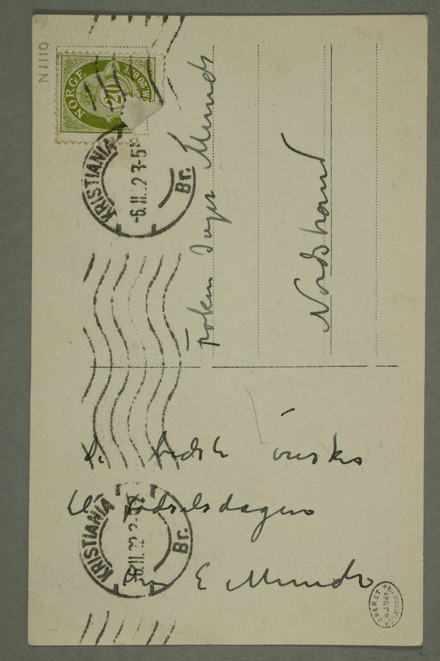 N 1110
NORGE
KRISTIANIA
-6.II.22
Br.
Frøken Inger Munch
Nordstrand
De bedste ønsker
til Fødselsdagen
fra E Munch
KRISTIANIA
-6.II.22
Br.